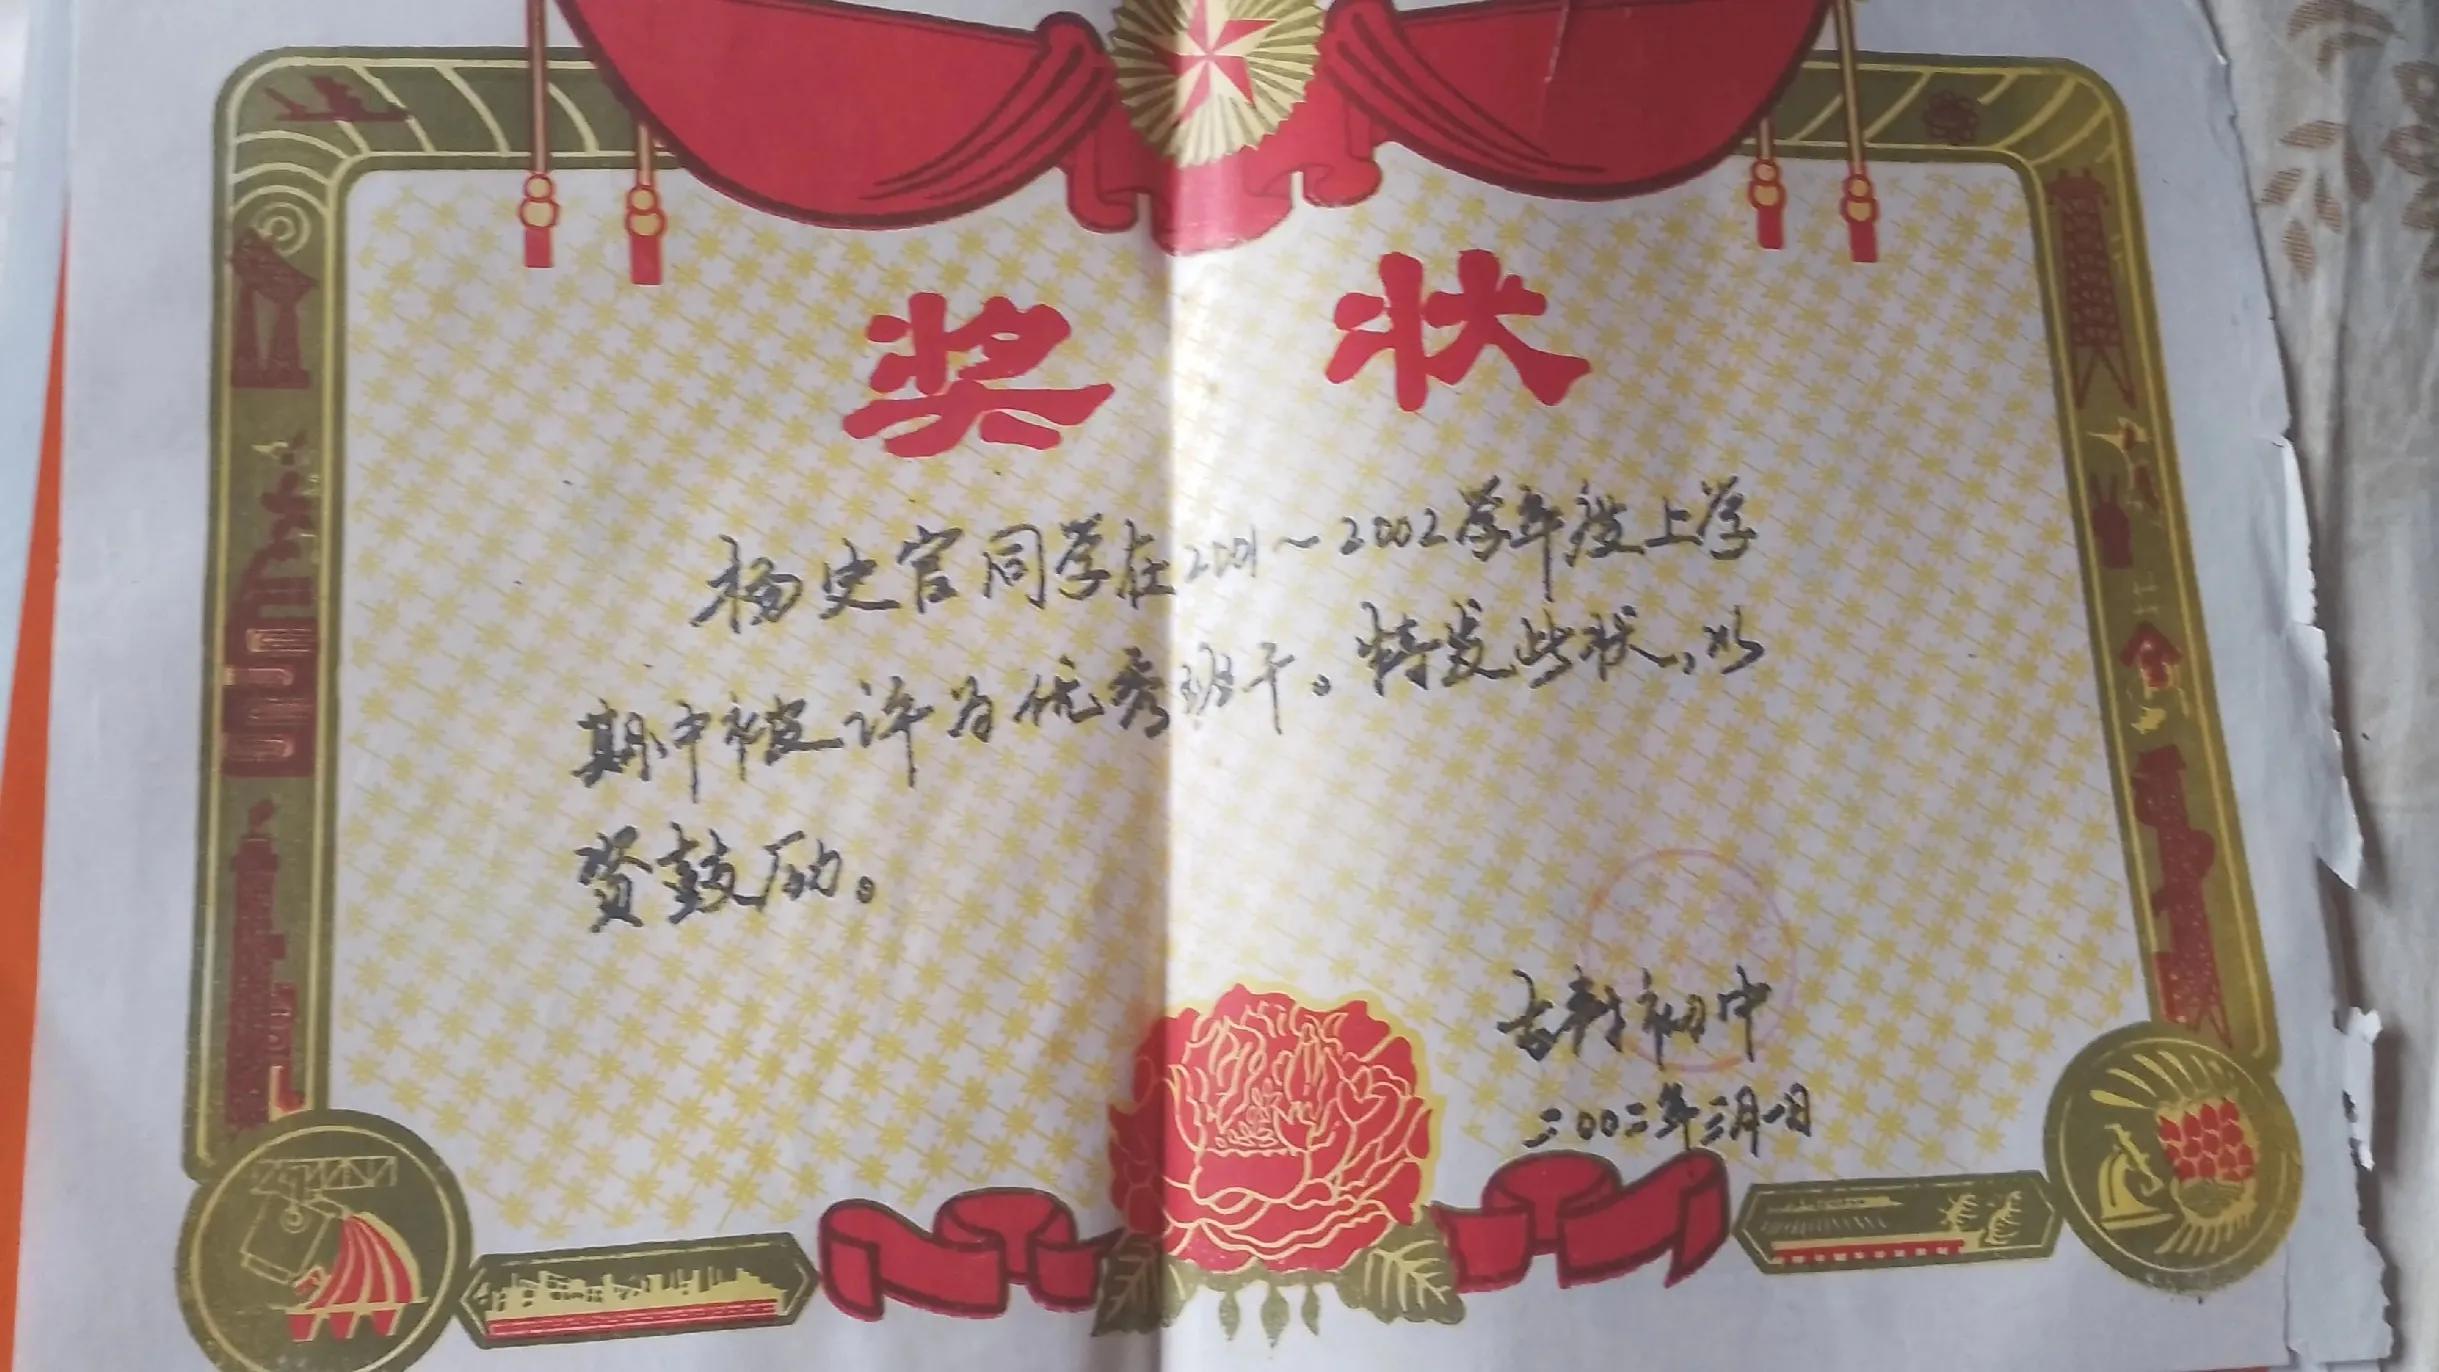 奖 状
杨史官同学在2001～2002学年度上学
期中被评为优秀班干。特发此状，以
资鼓励。
初中
二00二年三月一日